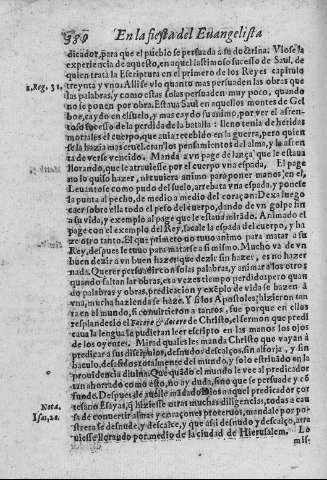 330 En la fiesta del Euangelista
dicador, para que el pueblo se persuada a su doctrina. Viose la
experiencia de aquesto, en aquel lastimoso sucesso de Saul, de
quien trata la Escriptura en el primero de los Reyes capitulo
1. Reg. 31. treynta y vno. Alli se vio quanto mas persuaden las obras que
las palabras, y como estas solas persuaden muy poco, quando
no se ponen por obra. Estaua Saul en aquellos montes de Gel
boe, caydo en el suelo, y mas caydo su animo, por ver el afren-
toso sucesso de la perdida de la batalla: lleno tenia de heridas
mortales el cuerpo, que auia recebido en la guerra, pero quien
se la hazia mas cruel, eran los pensamientos del alma, y la afren
ta de verse vencido. Manda a vn page de lança que le estaua
llorando, que le atrauiesse por el cuerpo vna espada. El page
no lo quiso hazer, ni tuuiera animo para poner manos en el,
Leuantose como pudo del suelo, arrebata vna espada, y ponese
la punta al pecho, de medio a medio del coraçon: Dexa luego
caer sobre ella todo el peso del cuerpo, dando de vn golpe fin
a su vida, y exemplo al page que le estaua mirãdo. Animado el
page con el exemplo del Rey, sacale la espada del cuerpo, y ha
ze otro tanto. El que primero no tuuo animo para matar a su
Rey, despues le tuuo para matarse a si mismo. Mucho va de vn
buen dezir a vn buen hazer: que dezir sin hazer, es no hazer
nada. Querer persuadir con solas palabras, y animar a los otros
quando faltan las obras, es a vezes tiempo perdido: pero quan
do palabras y obras, predicacion y exẽplo de vida se hazen à
vna, mucha hazienda se haze. Y si los Apostoles hizieron tan
ta en el mundo, si conuirtieron a tantos, fue porque en ellos
resplandecio el de Christo, el sermon que predi
caua la lengua se pudieran leer escripto en las manos los ojos
de los oyentes. Mirad quales les manda Christo que vayan à
predicar a sus discipulos, desnudos, descalços, sin alforja, y sin
baculo, desasidos totalmente del mundo, y solo estriuado en la
prouidencia diuina. Que quãdo el mundo le vee al predicador
tan ahorrado como esto, no ay duda, sino que se persuade y cõ
funde. Despues de auerle mãdado Dios a aquel predicador cor
Nota. tesano Esayas, q̃ hiziesse otras muchas diligencias, todas a cau
Isai. 20. sa de conuertir almas y coraçones proteruos, mandale por po-
strera se desnude, y descalce, y que assi desnudo y descalço, atra
uiesse llorando por medio de la ciudad de Hierusalem. Lo
mis-